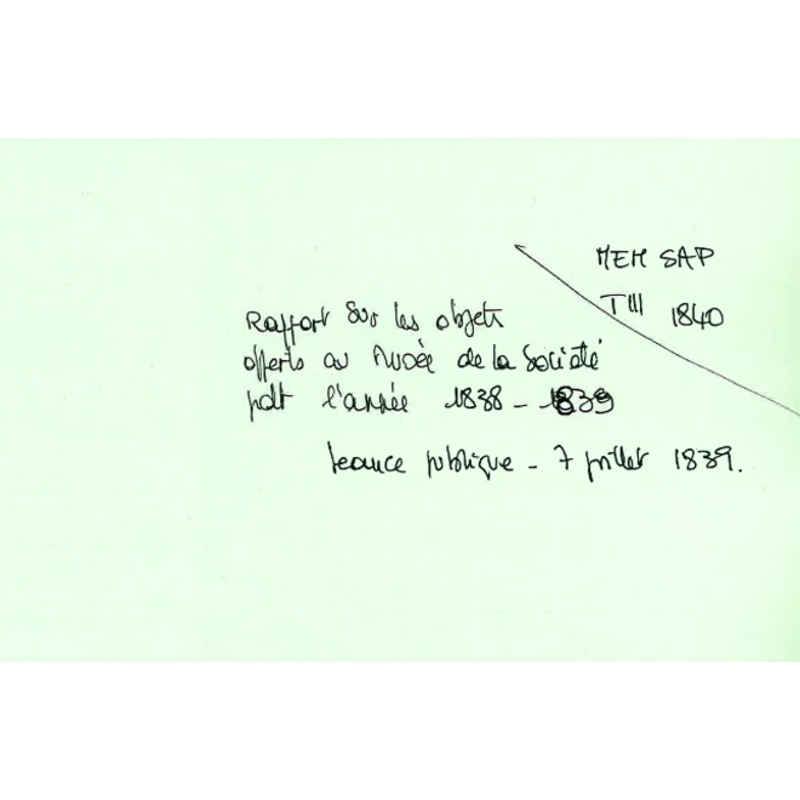 MEM SAP
TIII 1840
Rapport sur les objets
offerts au Musée de la Société
pdt l'année 1838 - 1839
Séance publique - 7 juillet 1839.